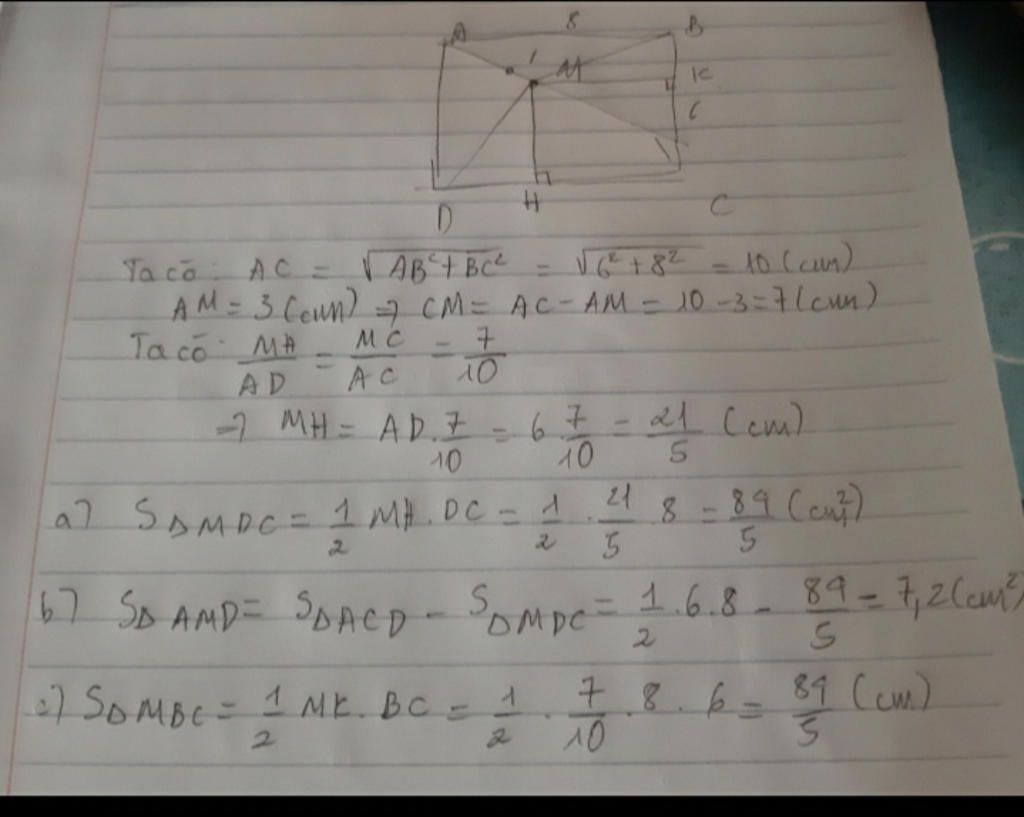 A 8 B
M K
6
D H C
Ta có: AC = √AB²+BC² = √6²+8² = 10 (cm)
AM = 3 (cm) => CM = AC - AM = 10 - 3 = 7 (cm)
Ta có: MH/AD = MC/AC = 7/10
=> MH = AD.7/10 = 6 7/10 = 21/5 (cm)
a) SΔMDC = 1/2 MH.DC = 1/2 . 21/5 8 = 84/5 (cm²)
b) SΔAMD = SΔACD - SΔMDC = 1/2 .6.8 - 84/5 = 7,2 (cm²)
c) SΔMBC = 1/2 MK.BC = 1/2 . 7/10 . 8 . 6 = 84/5 (cm)